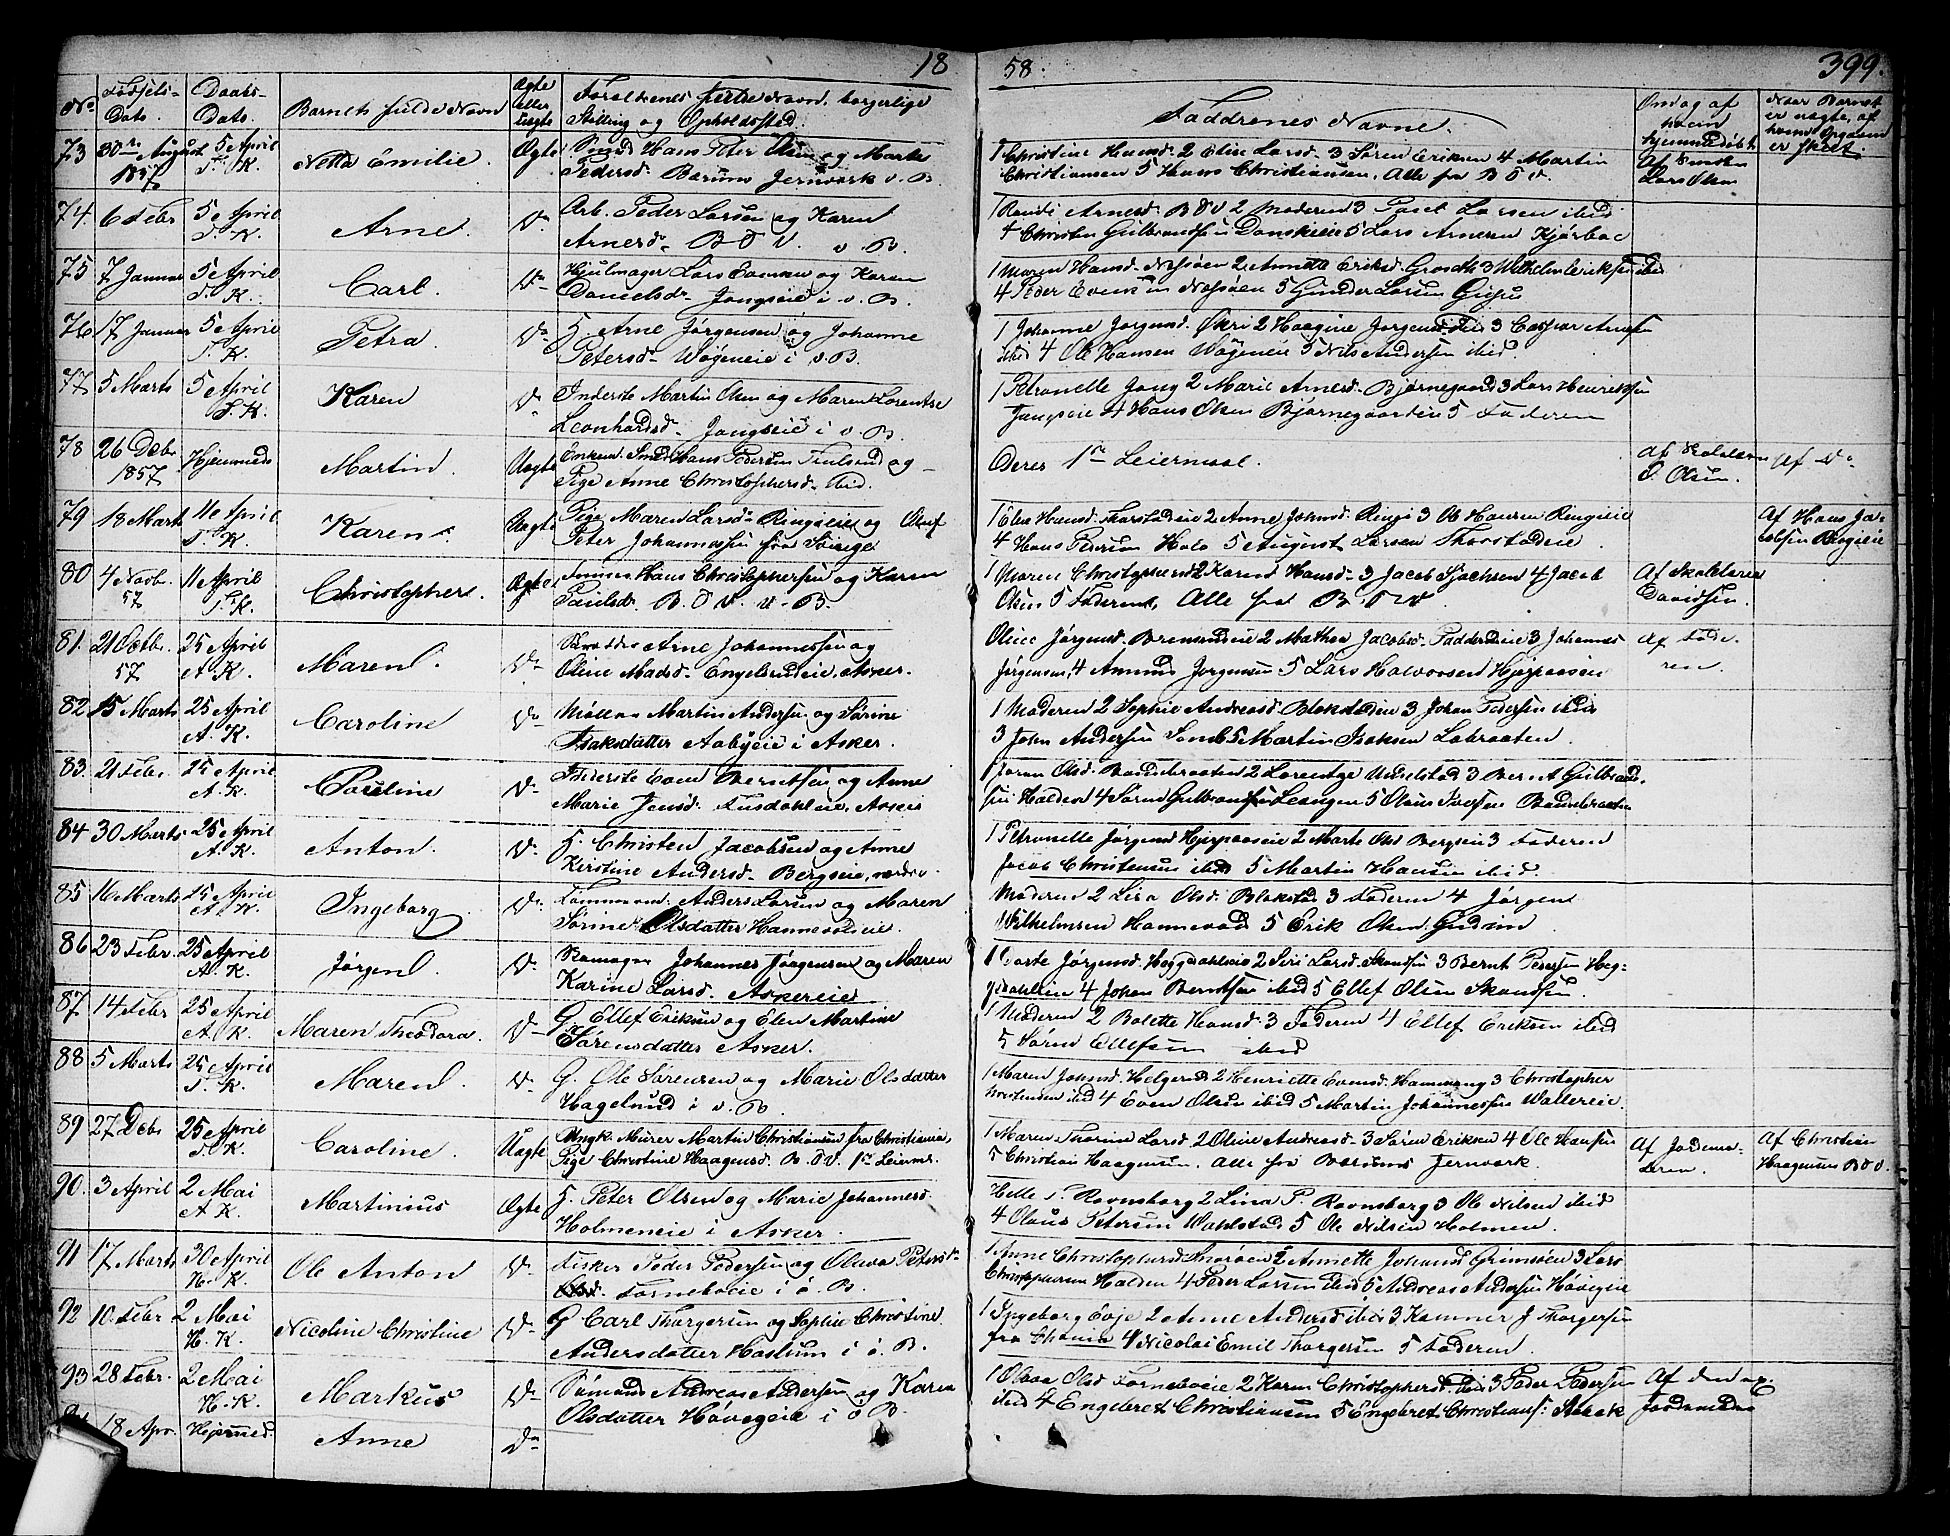 18 58. 399.
No. Fødsels-Dato. Daabs-Dato. Barnets fulde Navn Ægte eller uægte Forældrenes fulde Navn, borgerlige Stilling og Opholdssted. Faddrenes Navne. Om og af hvem hjemmedøbt Naar Barnet er uægte, af hvem Opgaven er skeet.
73 30te August 1857 5 April T. K. Netta Emilie. Ægte Smed Hans Peter Olsen og Marthe
Pedersd. Bærums Jernværk v. B.
1 Christine Hansd. 2 Eline Larsd. 3 Søren Eriksen 4 Martin
Christiansen 5 Hans Christiansen. Alle fra B. J. V.
Af Lars Olsen
74. 6 Febr 5 April T. K. Arne. Do. Arb. Peder Larsen og Karen
Arnesd. B. J. V. v. B.
1 Randi Arnesd. B J V 2 Moderen 3 Larsen ibid
4 Christen Gulbrandsen Danskeie 5 Lars Arnesen Kjørbo
75 7 Januar 5 April T. K. Carl. Do Hjulmager Lars Evensen og Karen
Danielsdr. Jongseie i v. B.
1 Maren Hansd. Næsøen 2 Annette Eriksd. 3 Wilhelm Eriksen ibid
4 Peder Evensen Næsøen 5 Gunder Larsen
76 17 Januar 5 April T. K. Petra. Do G. Arne Jørgensen og Johanne
Petersd. Wøgeneie i v. B.
1 Johanne Jørgensd. Økri 2 Haagine Jørgensd. ibid 3 Caspar Arnesen
ibid 4 Ole Hansen Wøgeneie 5 Nils Andersen ibid.
77 5 Marts 5 April T. K. Karen Do Inderste Martin Olsen og Maren Lorentse
Leonhardsd. Jongseie i v. B.
1 Petronelle Jong 2 Marie Arnesd. Bjørnegaard 3 Lars Henriksen
Jongseie 4 Hans Olsen Bjørnegaarden 5 Faderen
78 26 Decbr 1857 Hjemmeds Martin. Uægte Enkem. Smed Hans Pedersen og
Pige Anne Christophersd. ibid.
Deres 1ste Leiermaal.
Af Skolelærer O. Olsen. Af Do
79 18 Marts 11 April T. K. Karen. Uægte Pige Maren Larsd. Ringieie og Oluf
Peter Johannessen fra Sverige
1 Elen Hansd. Thorstadeie 2 Anne Johnsd. Ringi 3 Ole Hansen Ringieie
4 Hans Pedersen Holo 5 August Larsen Thorstadeie.
Af Hans Jacobsen Ringieie
80 4 Novb. 57 11 April T. K. Christopher. Ægte Hans Christophersen og Karen
Paulsdr. B. J. V. v. B.
1 Maren Christophersd 2 Karen Hansd. 3 Jacob 4 Jacob
Olsen 5 Faderen, Alle fra B. J. V.
Af Skolelærer Davidsen.
81. 21 Decbr. 57 25 April A. K. Maren. Do Arne Johannessen og
Oline Madsd. Engelsrudeie, Asker.
Oline Jørgensd. 2 Mathea Jacobsd. 3 Johannes
Jørgensen, 4 Amund Jørgensen 5 Lars Halvorsen
Af Faderen.
82 15 Marts 25 April A. K. Caroline Do Møller Martin Andersen og Karine
Isaksdatter Aabyeie i Asker.
1 Moderen 2 Sophie Andreasd. Blakstadeie 3 Johan Pedersen ibid
3 John Andersen 5 Martin Isaksen Labraaten.
83. 21 Febr. 25 April A. K. Pauline Do Inderste Even Berntsen og Anne
Marie Jensd. Fusdahleie, Asker
1 Olsd. 2 Lorentze Undelstad 3 Bernt Gulbrandsen
Halden 4 Søren Gulbrandsen Leangen 5 Olaus
84 30 Marts 25 April A. K. Anton. Do G. Christen Jacobsen og Anne
Kirstine Andersd. Bergseie, nedre.
1 Petronelle Jørgensd 2 Marte Olsd Bergseie 3 Faderen
Jacob Christensen ibid 5 Martin Hansen ibid.
85 16 Marts 25 April A. K. Ingeborg Do Anders Larsen og Maren
Sørine Olsdatter Hannevoldeie.
Moderen 2 Lisa Olsd. Blakstad 3 Faderen 4 Jørgen
Wilhelmsen Hannevold 5 Erik Olsen
86 23 Febr. 25 April A. K. Jørgen. Do Johannes Jørgensen og Maren
Karine Larsd. Askereie
1 Dorte Jørgensd. Heggedahleie 2 Siri Larsd. 3 Bernt Pedersen Heggedahleie
4 Johan Berntsen ibid 5 Ellef Olsen
87 14 Febr 25 April A. K. Maren Theodora. Do G Ellef Eriksen og Elen Martine
Sørensdatter Asker.
1 Moderen 2 Bolette Hansd. 3 Faderen 4 Ellef Eriksen ibid
5 Søren Ellefsen ibid
88 5 Marts 25 April T. K. Maren. Do G. Ole Sørensen og Marie Olsdatter
Hagelund i v. B.
1 Maren Johnsd. Helgerud 2 Henriette Evensd. Hammang 3 Christopher
Christensen ibid 4 Even Olsen ibid 5 Martin Johannessen Wallereie.
89 27 Decbr 25 April T. K. Caroline. Uægte Ungk. Murer Martin Christiansen fra Christiania,
Pige Christine Haagensd. B. J. V. 1ste Leierm.
1 Maren Thorine Larsd. 2 Oline Andreasd. 3 Søren Eriksen 4 Ole Hansen
5 Christian Haagensen. Alle fra Bærums Jernværk.
Af Jordemoderen. Af Christian Haagensen B J V.
90. 3 April 2 Mai A. K. Martinius Ægte G. Peter Olsen og Marie Johannesd.
Holmeneie i Asker.
Helle P. Ravnsborg 2 Lina P. Ravnsborg 3 Ole Nilsen ibid
4 Olaus Petersen Wahlstad 5 Ole Nilsen Holmen.
91 17 Marts 30 April H. K. Ole Anton Do Fisker Peder Pedersen og Oleva Petersd.
Forneboeie i ø. B.
1 Anne Christophersd. Snarøen 2 Annette Johansd Grimsøen 3 Lars
Christophersen Halden 4 Peder Larsen ibid 5 Andreas Andersen Høvigeie
92 10. Febr 2 Mai H. K. Nicoline Christine Do G Carl Thorgersen og Sophie Christine
Andersdatter Haslum i ø. B.
1 Ingeborg Evje 2 Anne Andersd ibid 3 J Thorgersen
fra Chania 4 Nicolai Emil Thorgersen 5 Faderen.
93 28 Febr. 2 Mai H. K. Markus Do Sømand Andreas Andersen og Karen
Olsdatter Høvigeie i ø B.
1 Olava Olsd Forneboeie 2 Karen Christophersd. ibid 3 Peder Pedersen
ibid 4 Engebret Christiansen 5 Engebret Christians. Stabek
Af den ex. Jordemoder
18 Apr. Hjemmed. Anne Do